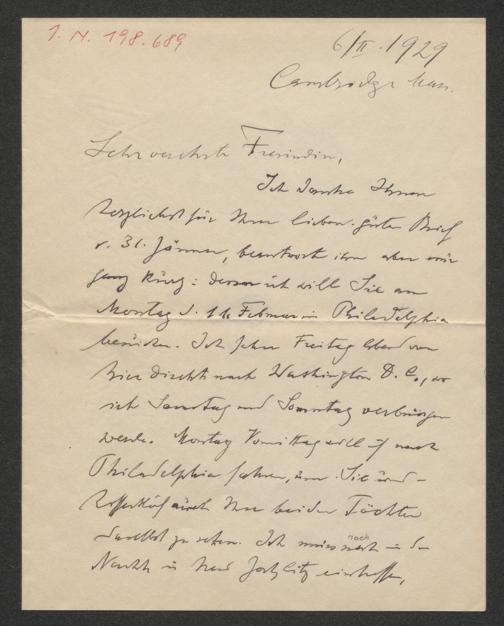 I. N. 198.689
6/II. 1929
Cambridge Mass.
Sehr verehrte Freundin,
Ich danke Ihnen
herzlichst für Ihren lieben guten Brief
v. 31. Jänner, beantworte ihn aber nur
ganz kurz: denn ich will Sie am
Montag d. 11. Februar in Philadelphia
besuchen. Ich fahre Freitag Abend von
hier direkt nach Washington D. C., wo
ich Samstag und Sonntag verbringen
werde. Montag Vormittag will ich nach
Philadelphia fahren, um Sie und
hoffentlich auch Ihre beiden Töchter
daselbst zu sehen. Ich muss noch in der
Nacht in New eintreffen,